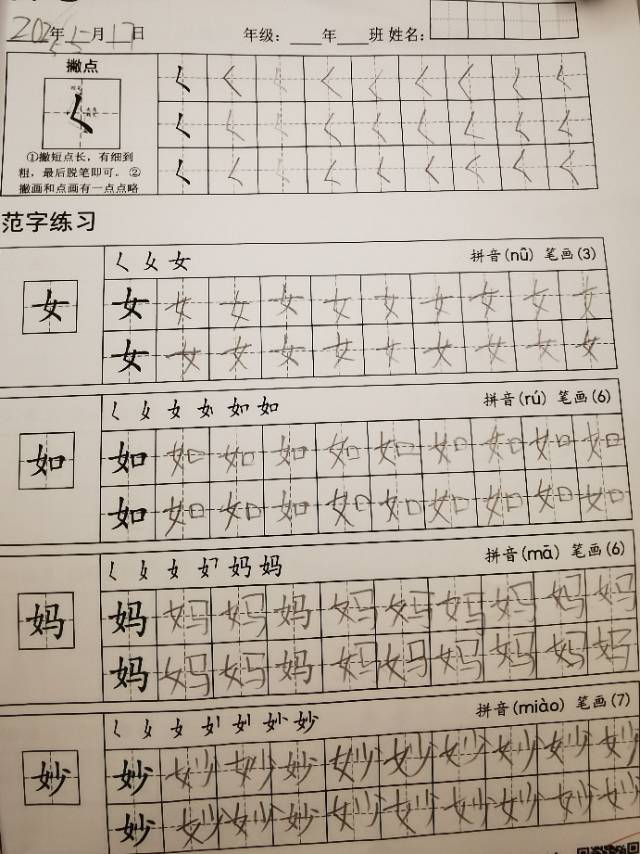 年 5月17日 年级：___年___班 姓名：
撇点
①撇短点长，有细到
粗，最后脱笔即可。②
撇画和点画有一点点略
范字练习
𡿨 女 女 拼音(nǚ) 笔画(3)
女 女 女 女 女 女 女 女 女 女 女
女 女 女 女 女 女 女 女 女 女
如 拼音(rú) 笔画(6)
如 如 如 如 如 如 如 如 如 如 如
如 如 如 如 如 如 如 如 如 如
妈 拼音(mā) 笔画(6)
妈 妈 妈 妈 妈 妈 妈 妈 妈 妈 妈
妈 妈 妈 妈 妈 妈 妈 妈 妈 妈
妙 拼音(miào) 笔画(7)
妙 妙 妙 妙 妙 妙 妙 妙 妙 妙 妙
妙 妙 妙 妙 妙 妙 妙 妙 妙 妙